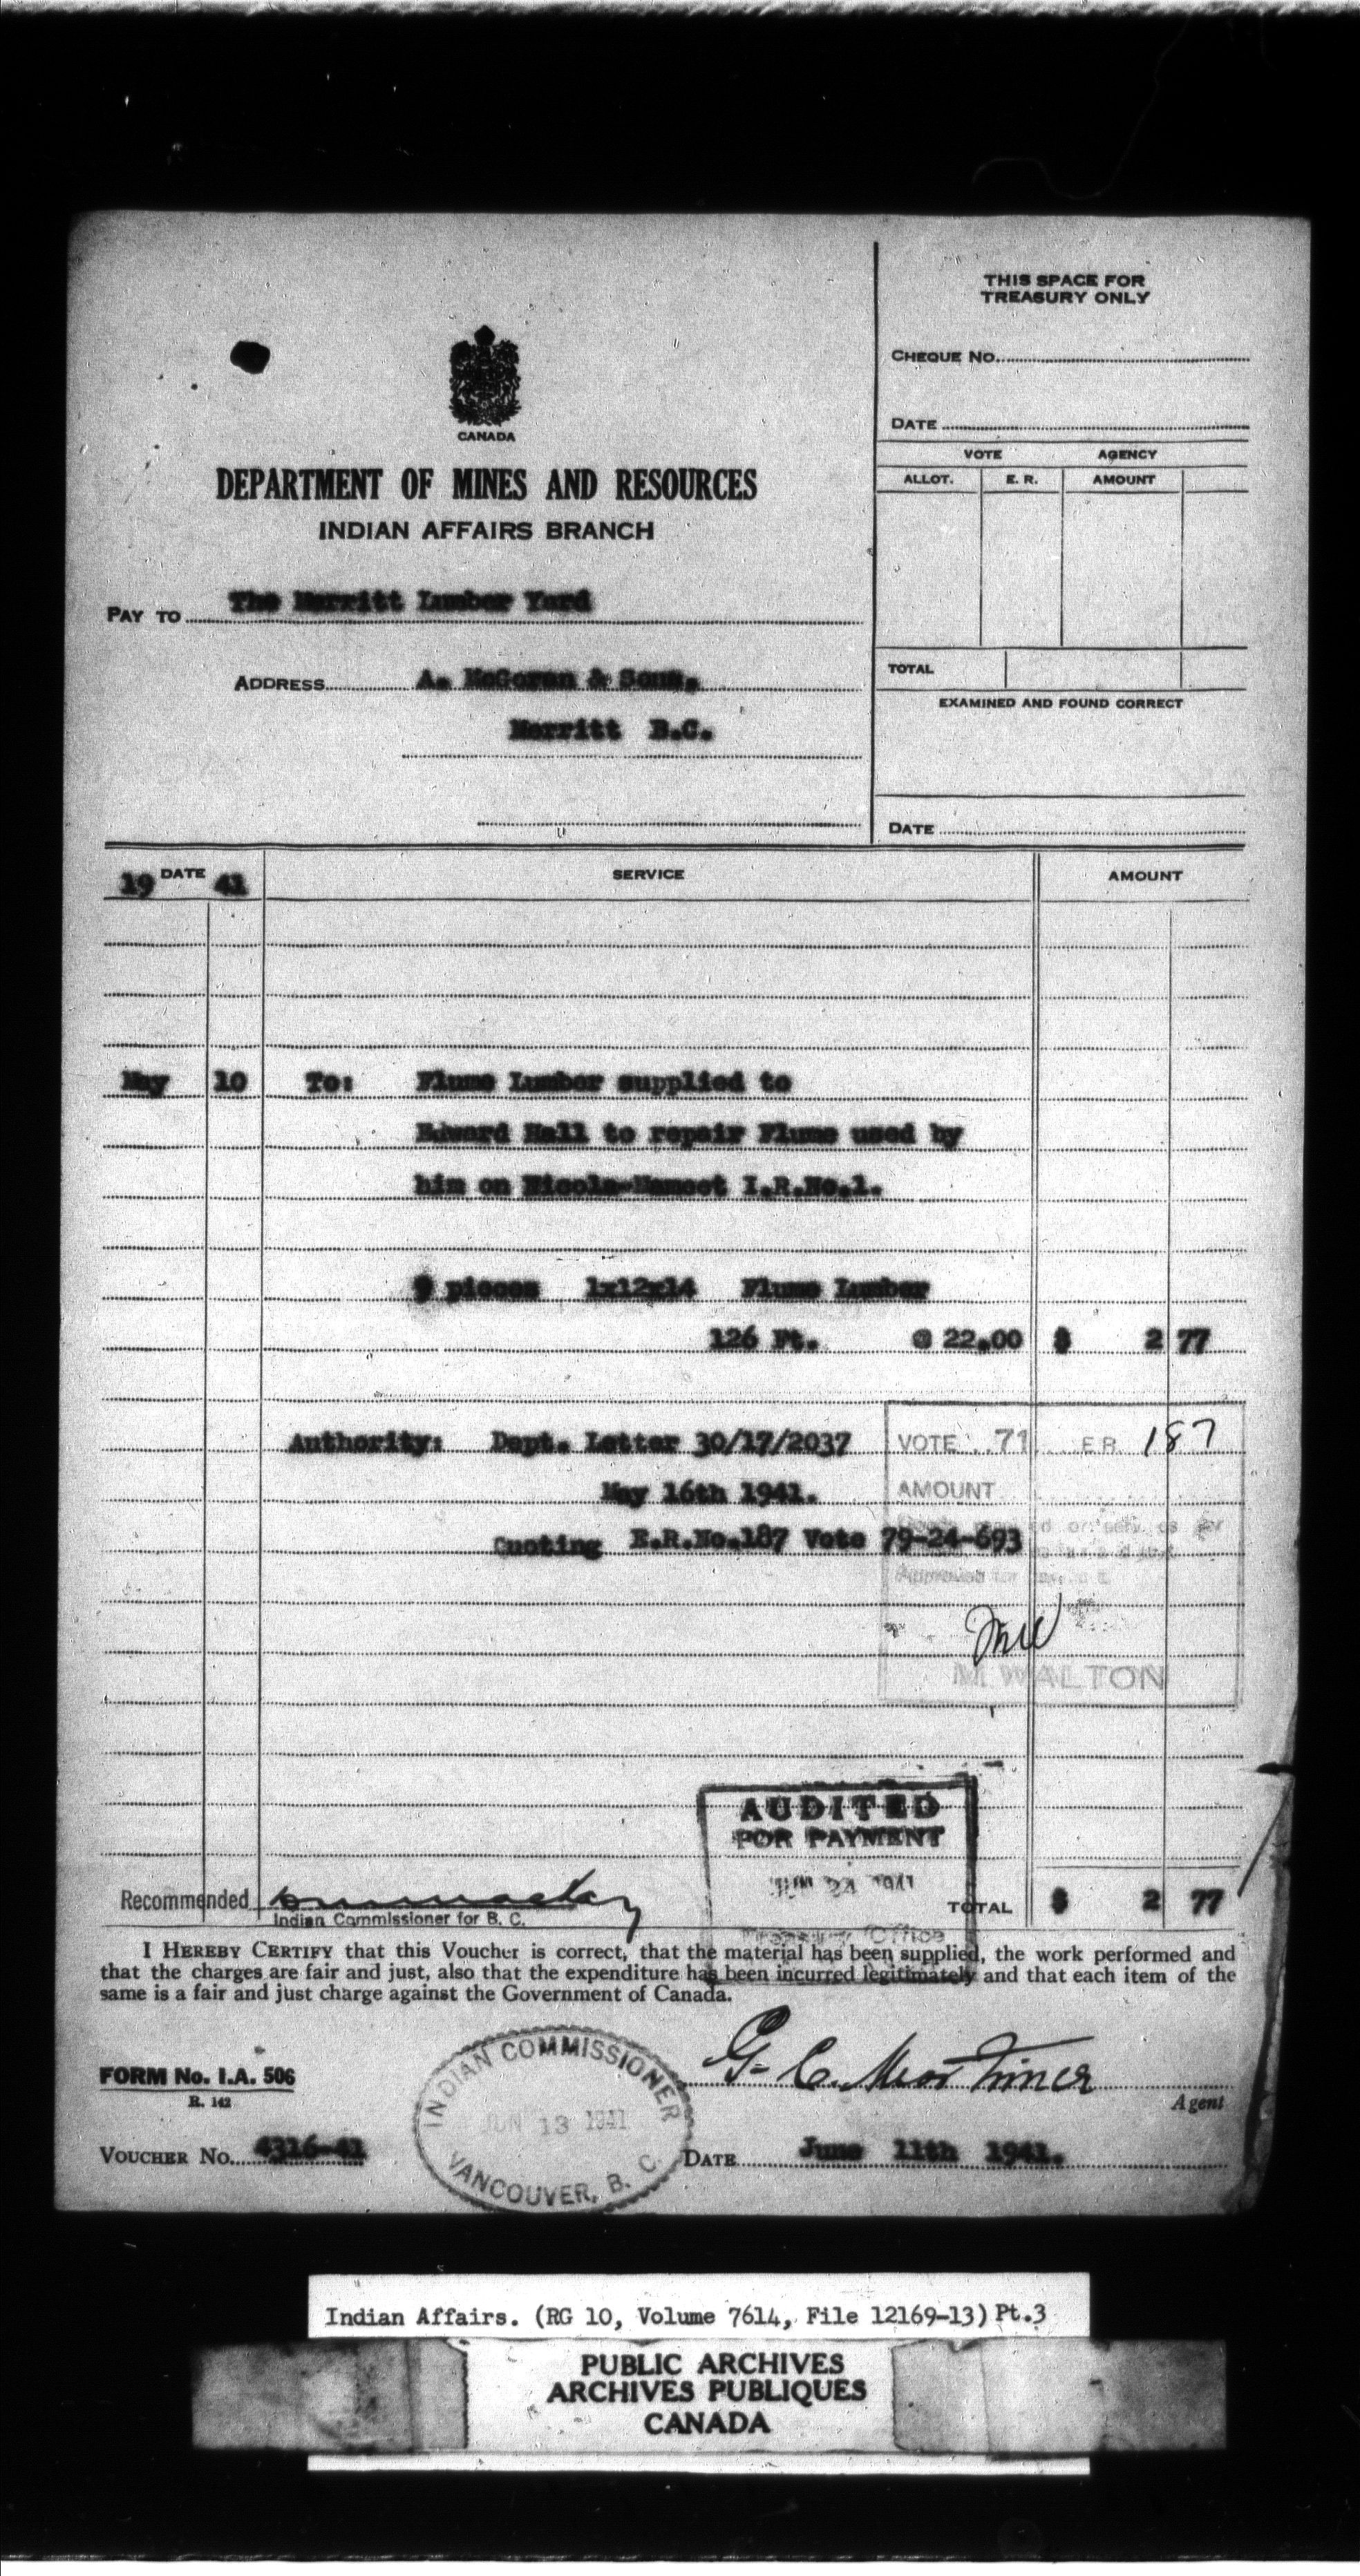 THIS SPACE FOR
TREASURY ONLY
CHEQUE No.
DATE
VOTE AGENCY
ALLOT. E. R. AMOUNT
TOTAL
EXAMINED AND FOUND CORRECT
DATE
CANADA
DEPARTMENT OF MINES AND RESOURCES
INDIAN AFFAIRS BRANCH
PAY TO The Merritt Lumber Yard
ADDRESS A. McGoran & Sons.
Merritt B.C.
19 DATE 41 SERVICE AMOUNT
May 10 To: Flume Lumber supplied to
Edward Hall to repair Flume used by
him on Nicola-Mameet I.R.No.1.
9 pieces 1x12x14 Flume Lumber
126 Ft. @ 22.00 $ 2 77
Authority: Dept. Letter 30/17/2037
May 16th 1941.
Quoting E.R.No.187 Vote 79-24-693
VOTE 71 E.R. 187
AMOUNT
MW
M. WALTON
AUDITED
FOR PAYMENT
JUN 1941
Treasury Office
Recommended
Indian Commissioner for B. C.
TOTAL $ 2 77
I HEREBY CERTIFY that this Voucher is correct, that the material has been supplied, the work performed and
that the charges are fair and just, also that the expenditure has been incurred legitimately and that each item of the
same is a fair and just charge against the Government of Canada.
G. C. Mortimer
Agent
FORM No. I.A. 506
R. 142
INDIAN COMMISSIONER
JUN 13 1941
VANCOUVER, B. C.
VOUCHER No. 4316-41
DATE June 11th 1941.
Indian Affairs. (RG 10, Volume 7614, File 12169-13) Pt.3
PUBLIC ARCHIVES
ARCHIVES PUBLIQUES
CANADA